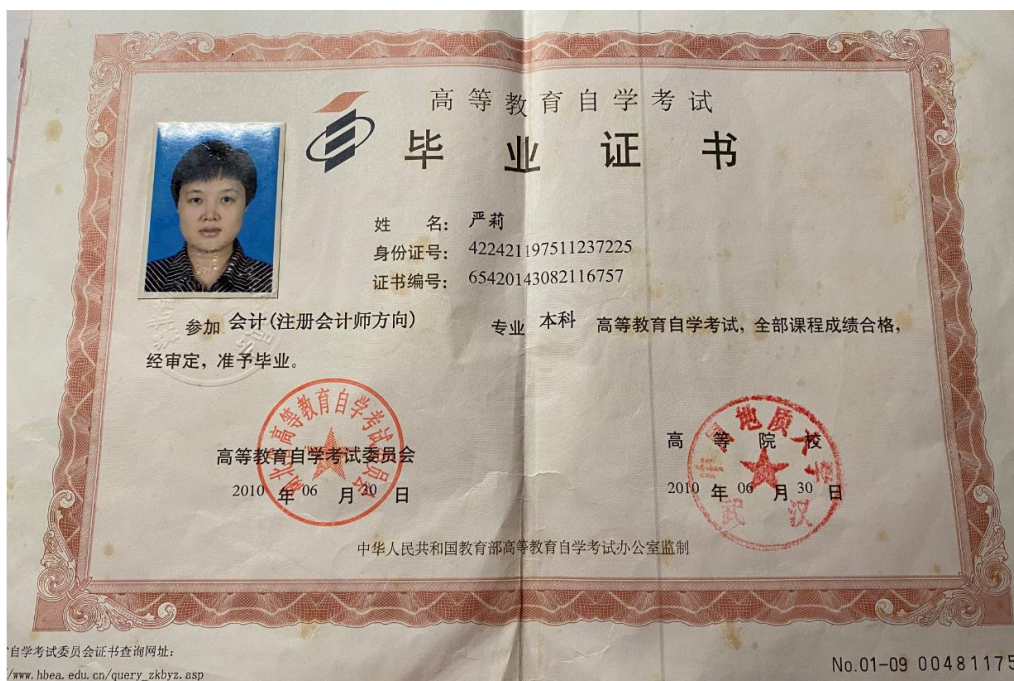 高等教育自学考试
毕业证书
姓 名: 严莉
身份证号: 422421197511237225
证书编号: 65420143082116757
参加 会计(注册会计师方向) 专业 本科 高等教育自学考试，全部课程成绩合格，
经审定，准予毕业。
湖北省高等教育自学考试委员会
高等教育自学考试委员会
2010 年 06 月 30 日
中国地质大学
武汉
高等院校
2010 年 06 月 30 日
中华人民共和国教育部高等教育自学考试办公室监制
自学考试委员会证书查询网址:
/www.hbea.edu.cn/query_zkbyz.asp
No.01-09 00481175